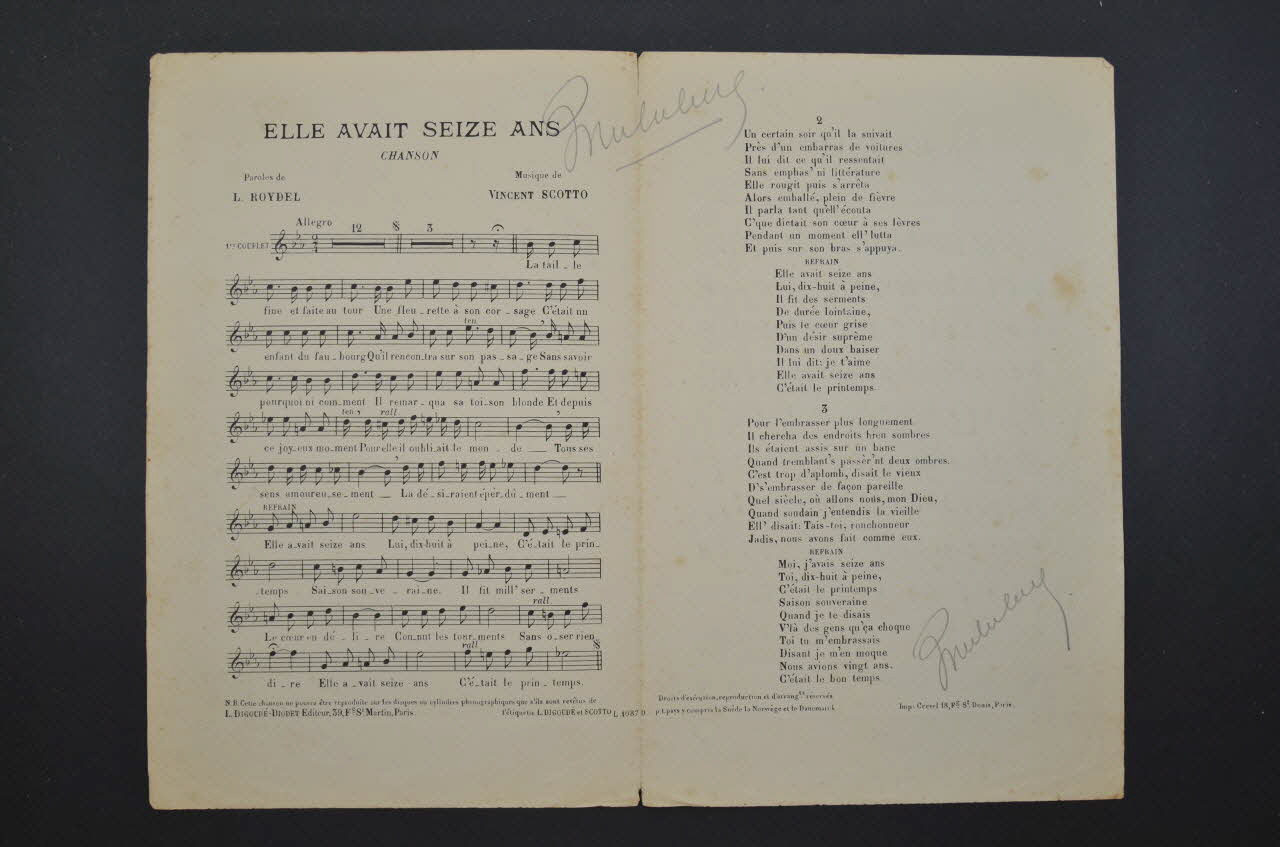 ELLE AVAIT SEIZE ANS
CHANSON
Paroles de
L. ROYDEL
Musique de
VINCENT SCOTTO
Allegro
12
3
1er COUPLET
La tail_le
fine et faite au tour Une fleu_rette à son cor_sage C'était un
ten.
enfant du fau_bourg Qu'il rencon_tra sur son pas_sa_ge Sans savoir
pourquoi ni com_ment Il remar_qua sa toi_son blonde Et depuis
ten. rall
ce joy_eux mo_ment Pour elle il oubli_ait le mon_de Tous ses
sens amoureu_se_ment La dé_si_raient éper_dû_ment
REFRAIN
Elle a_vait seize ans Lui, dix-huit à pei_ne, C'é_tait le prin_
temps Sai_son sou_ve_rai_ne. Il fit mill' ser_ments
rall.
Le cœur en dé_li_re Con_nut les tour_ments Sans o_ser rien
rall
di_re Elle a_vait seize ans C'é_tait le prin_temps.
N.B. Cette chanson ne pourra être reproduite sur les disques ou cylindres phonographiques que s'ils sont revêtus de
L. DIGOUDÉ-DIODET Editeur, 39, Fg St Martin, Paris. l'étiquette L. DIGOUDÉ et SCOTTO L. 1087 D.
2
Un certain soir qu'il la suivait
Près d'un embarras de voitures
Il lui dit ce qu'il ressentait
Sans emphas' ni littérature
Elle rougit puis s'arrêta
Alors emballé, plein de fièvre
Il parla tant qu'ell' écouta
C'que dictait son cœur à ses lèvres
Pendant un moment ell' lutta
Et puis sur son bras s'appuya.
REFRAIN
Elle avait seize ans
Lui, dix-huit à peine,
Il fit des serments
De durée lointaine,
Puis le cœur grise
D'un désir suprême
Dans un doux baiser
Il lui dit: je t'aime
Elle avait seize ans
C'était le printemps.
3
Pour l'embrasser plus longuement
Il chercha des endroits bien sombres
Ils étaient assis sur un banc
Quand tremblant's passèr'nt deux ombres.
C'est trop d'aplomb, disait le vieux
D's'embrasser de façon pareille
Quel siècle, où allons nous, mon Dieu,
Quand soudain j'entendis la vieille
Ell' disait: Tais-toi, ronchonneur
Jadis, nous avons fait comme eux.
REFRAIN
Moi, j'avais seize ans
Toi, dix-huit à peine,
C'était le printemps
Saison souveraine
Quand je te disais
V'là des gens qu'ça choque
Toi tu m'embrassais
Disant je m'en moque
Nous avions vingt ans.
C'était le bon temps.
Droits d'exécution, reproduction et d'arrangts réservés
p.t. pays y compris la Suède la Norwège et le Danemark
Imp: Crevel 18, Fg St Denis, Paris.